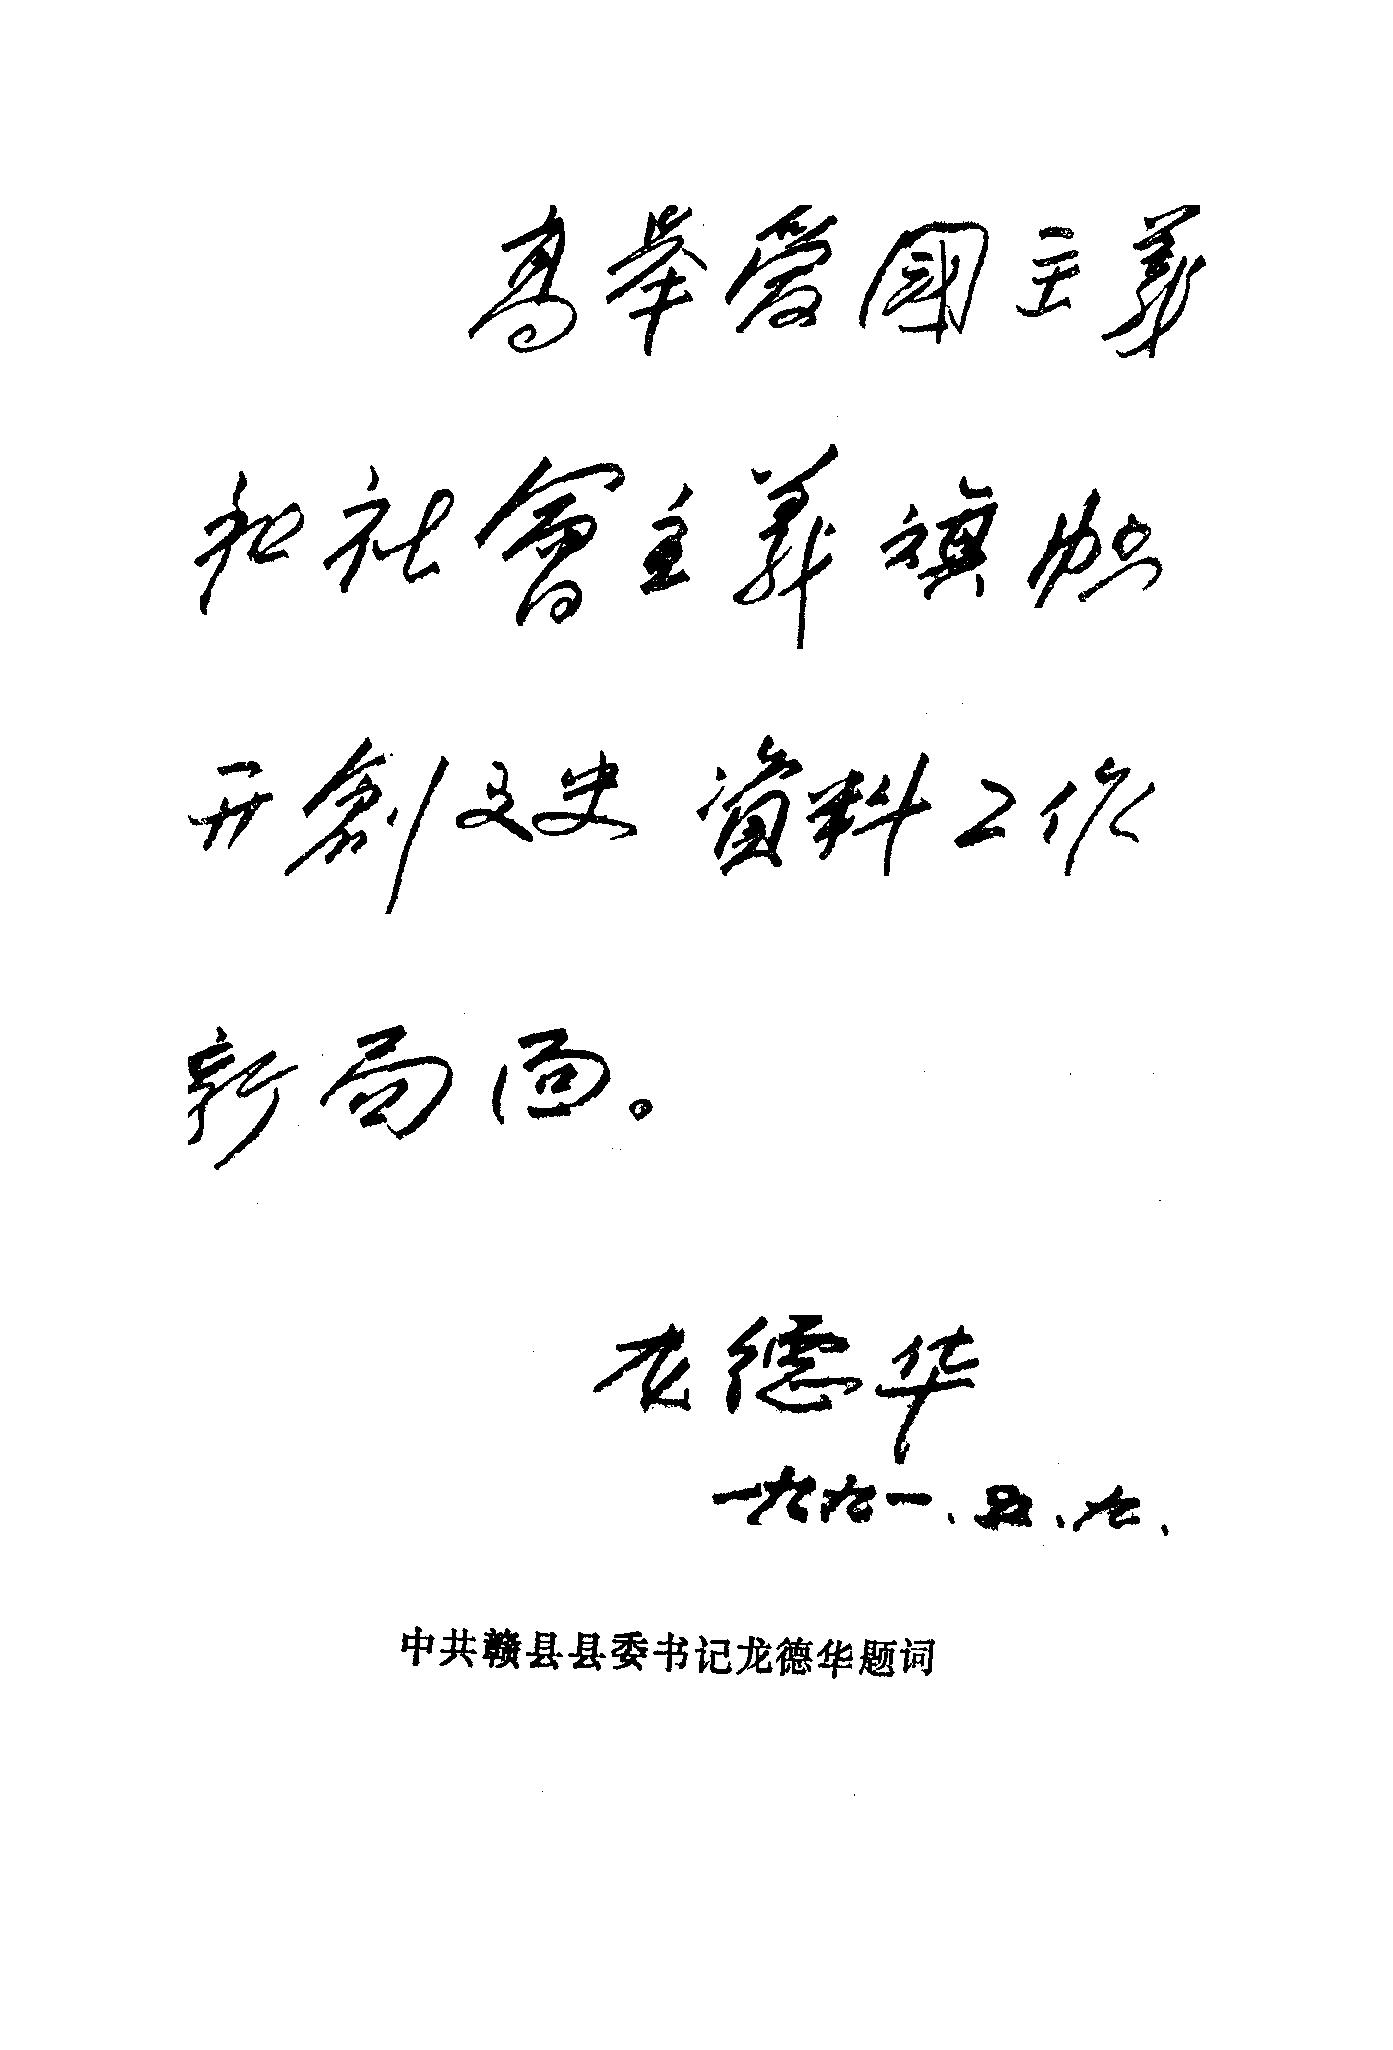 高举爱國主義
和社會主義旗帜
开創文史資料工作
新局面。
龙德华
一九九一、五、九、
中共赣县县委书记龙德华题词